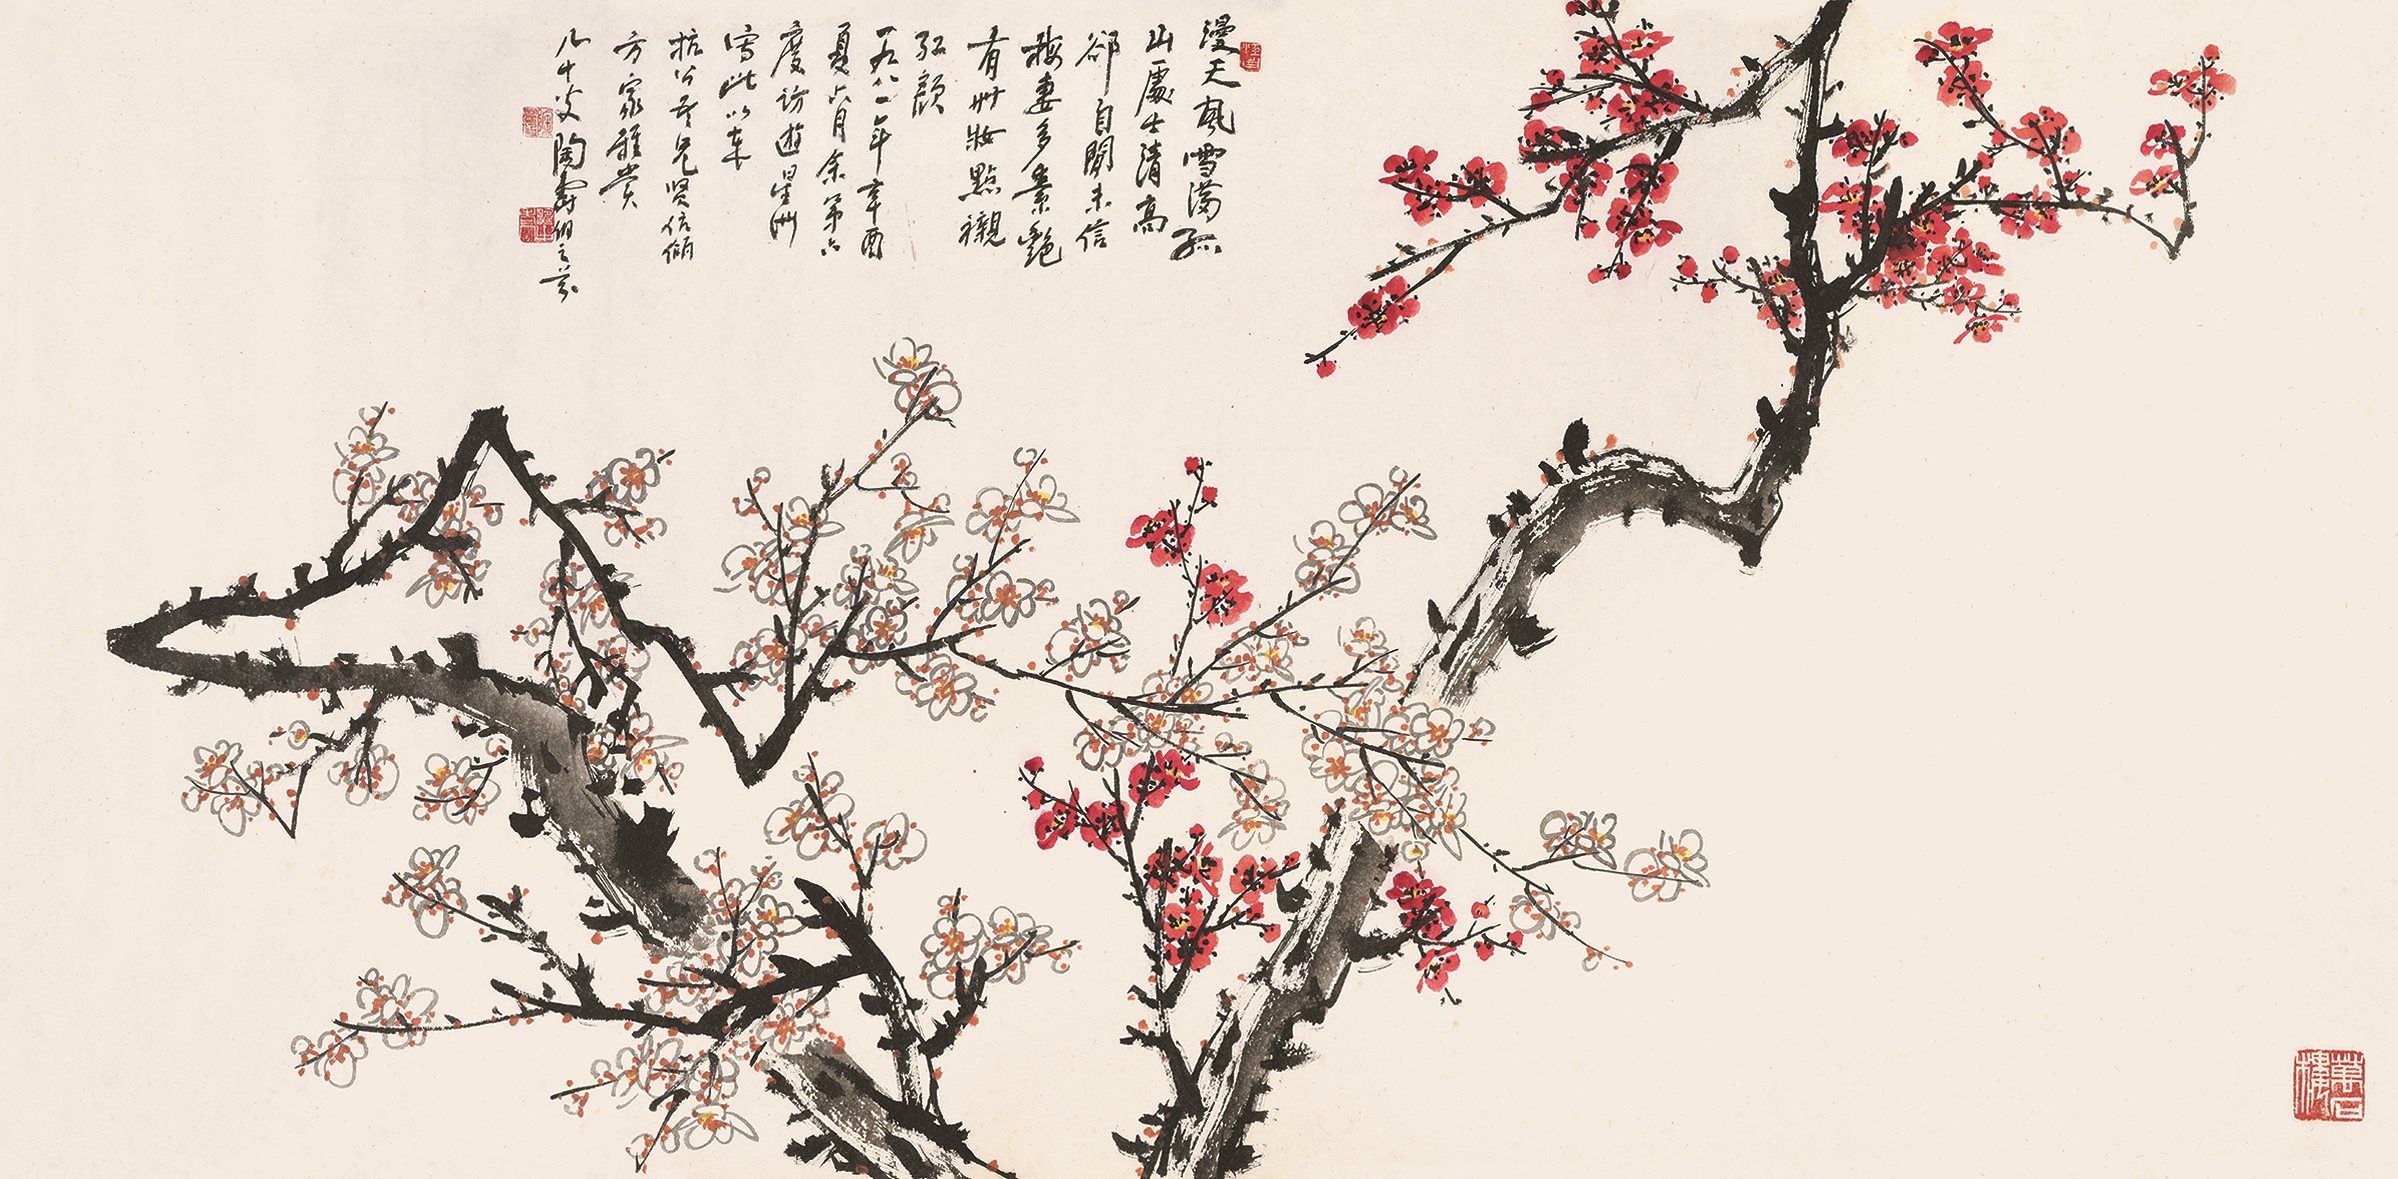 漫天風雪滿孤
山處士清高
卻自閒未信
梅妻多素艷
有時妝點襯
紅顏
一九八一年辛酉
夏六月余第六
度訪遊星洲
寫此以奉
杭公吾兄賢伉儷
方家雅賞
八十叟陶壽伯
萬石樓